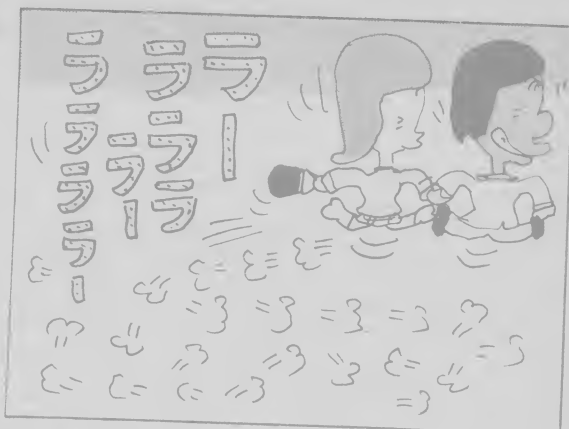 ラー
ラララ
ラー
ララララー